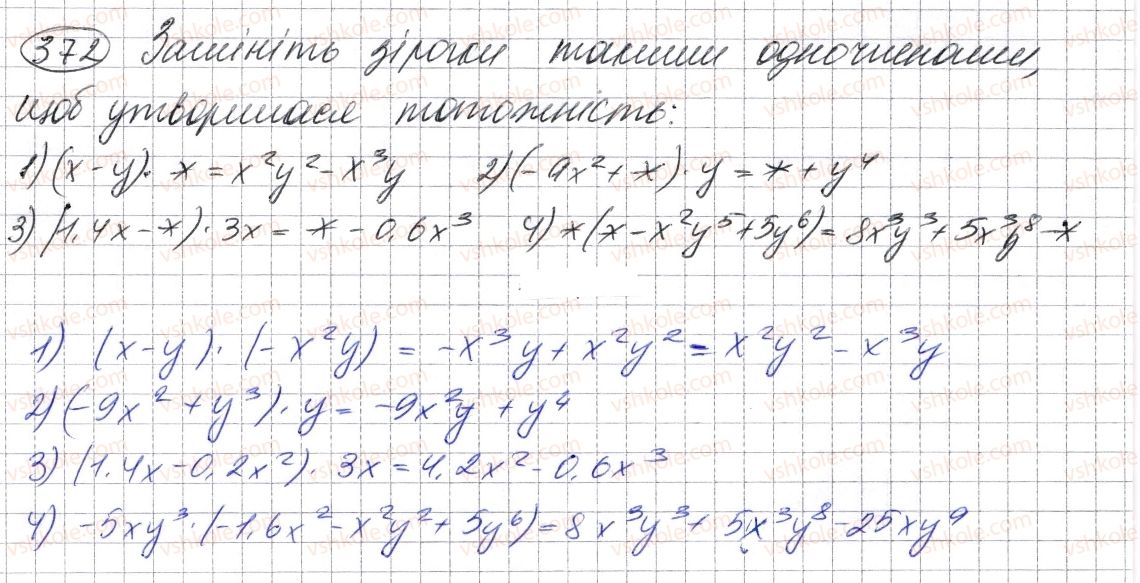 372 Замініть зірочки такими одночленами,
щоб утворилася тотожність:
1) (x - y) · * = x²y² - x³y 2) (-9x² + *) · y = * + y⁴
3) (1,4x - *) · 3x = * - 0,6x³ 4) * (* - x²y⁵ + 5y⁶) = 8x³y³ + 5x³y⁸ - *
1) (x - y) · (-x²y) = -x³y + x²y² = x²y² - x³y
2) (-9x² + y³) · y = -9x²y + y⁴
3) (1,4x - 0,2x²) · 3x = 4,2x² - 0,6x³
4) -5xy³ · (-1,6x² - x²y² + 5y⁶) = 8x³y³ + 5x³y⁸ - 25xy⁹